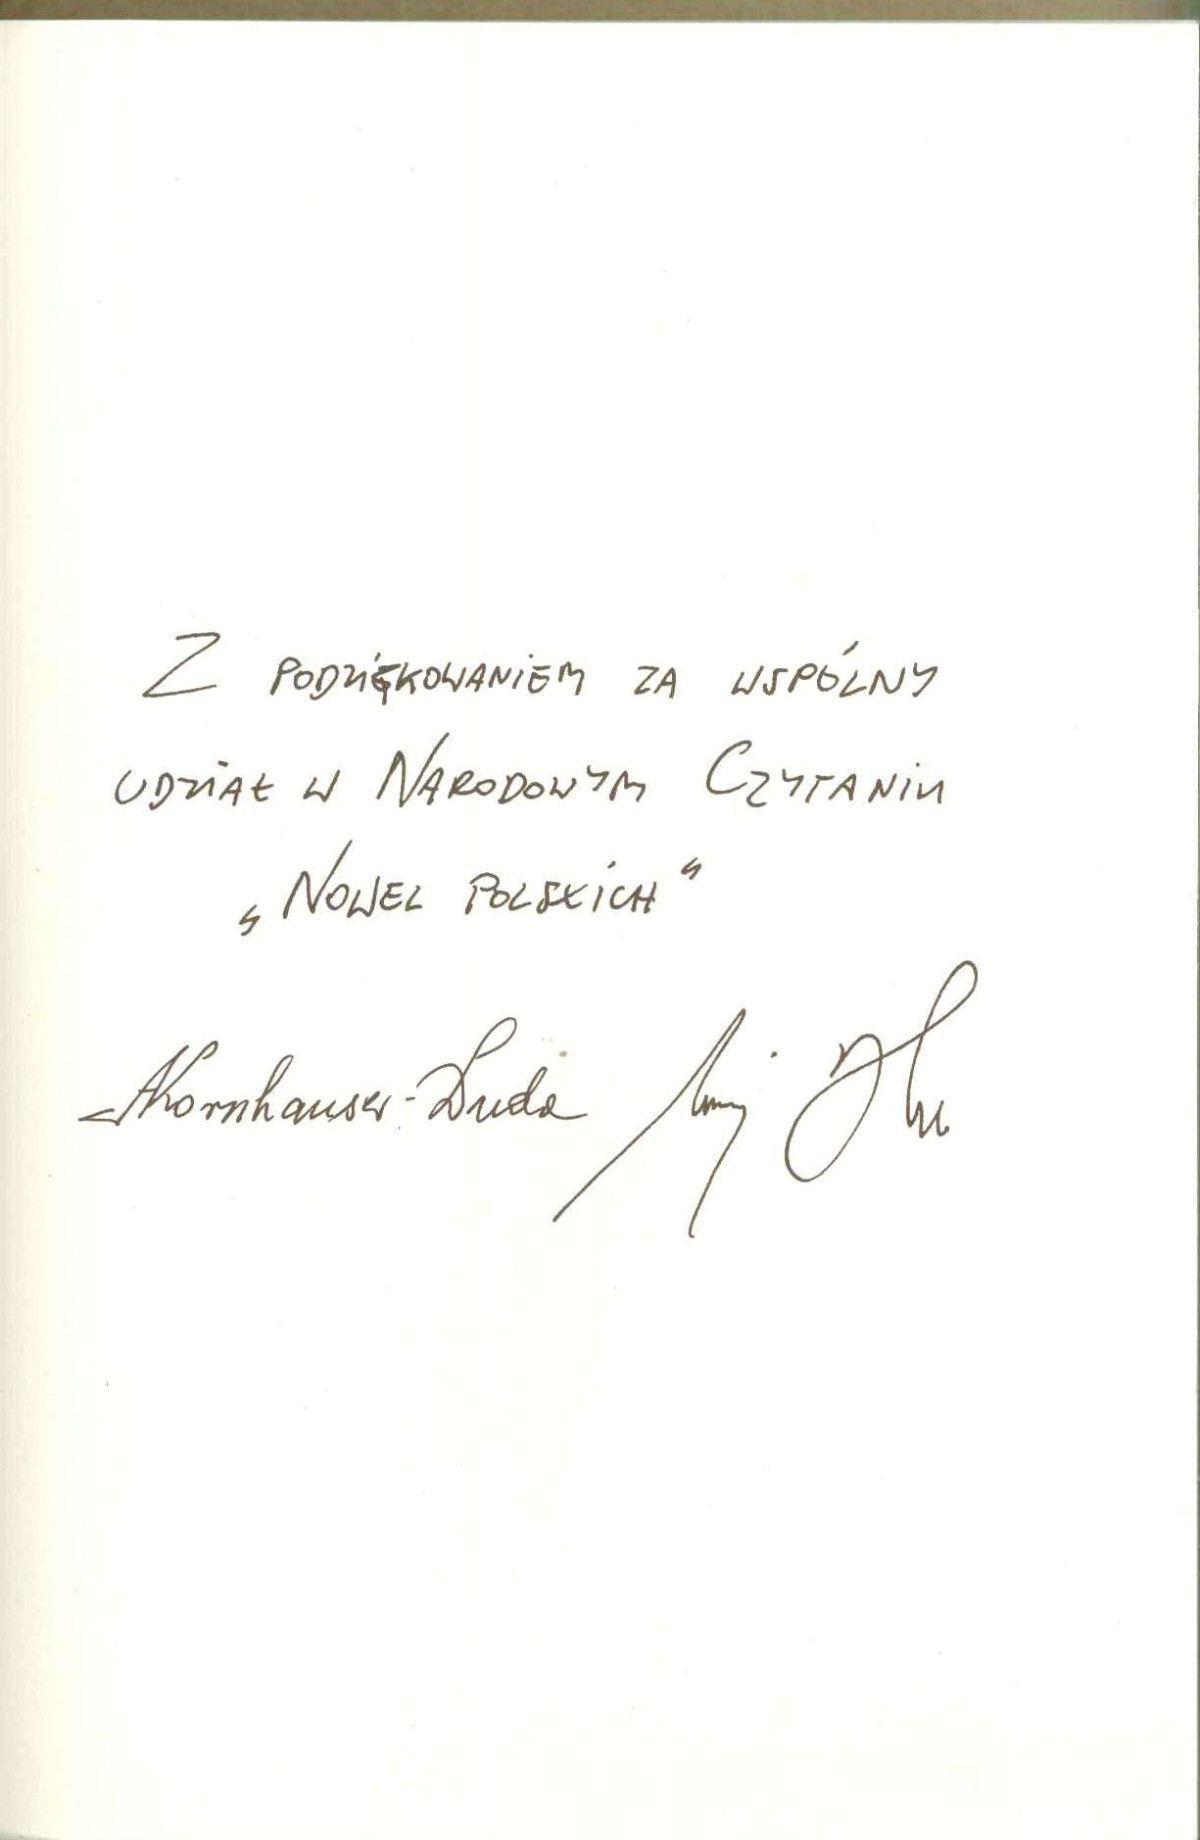 Z PODZIĘKOWANIEM ZA WSPÓLNY
UDZIAŁ W NARODOWYM CZYTANIU
„NOWEL POLSKICH"
AKornhauser-Duda